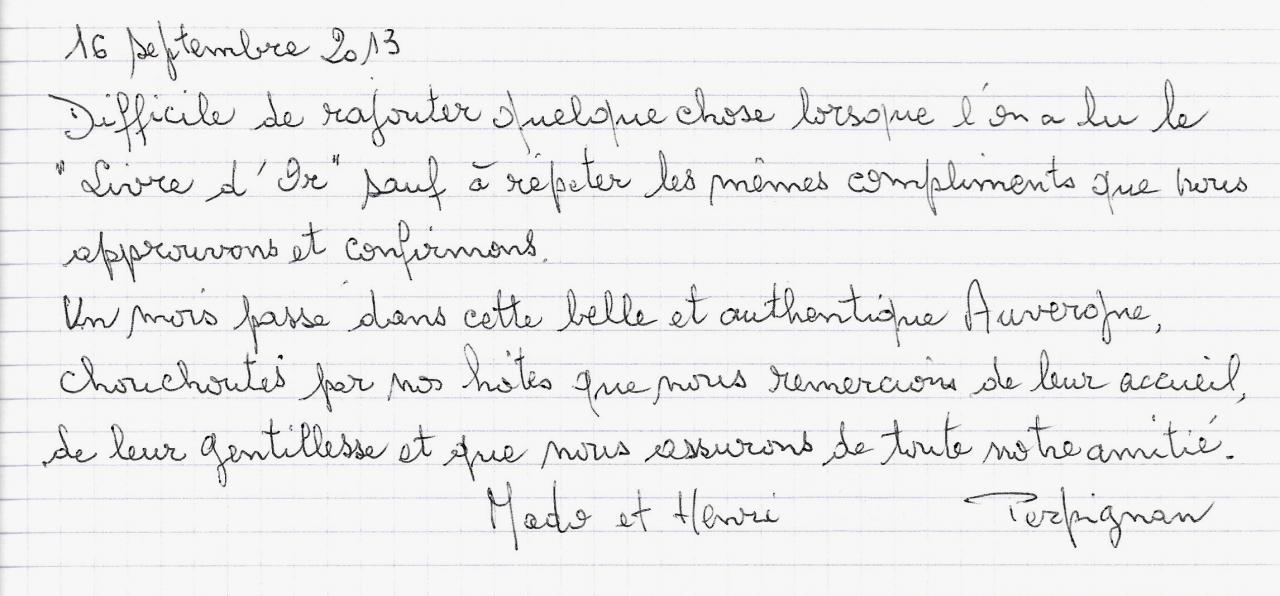 16 septembre 2013
Difficile de rajouter quelque chose lorsque l'on a lu le
"Livre d'Or" sauf à répéter les mêmes compliments que nous
approuvons et confirmons.
Un mois passé dans cette belle et authentique Auvergne,
chouchoutés par nos hôtes que nous remercions de leur accueil,
de leur gentillesse et que nous assurons de toute notre amitié.
Mado et Henri Perpignan